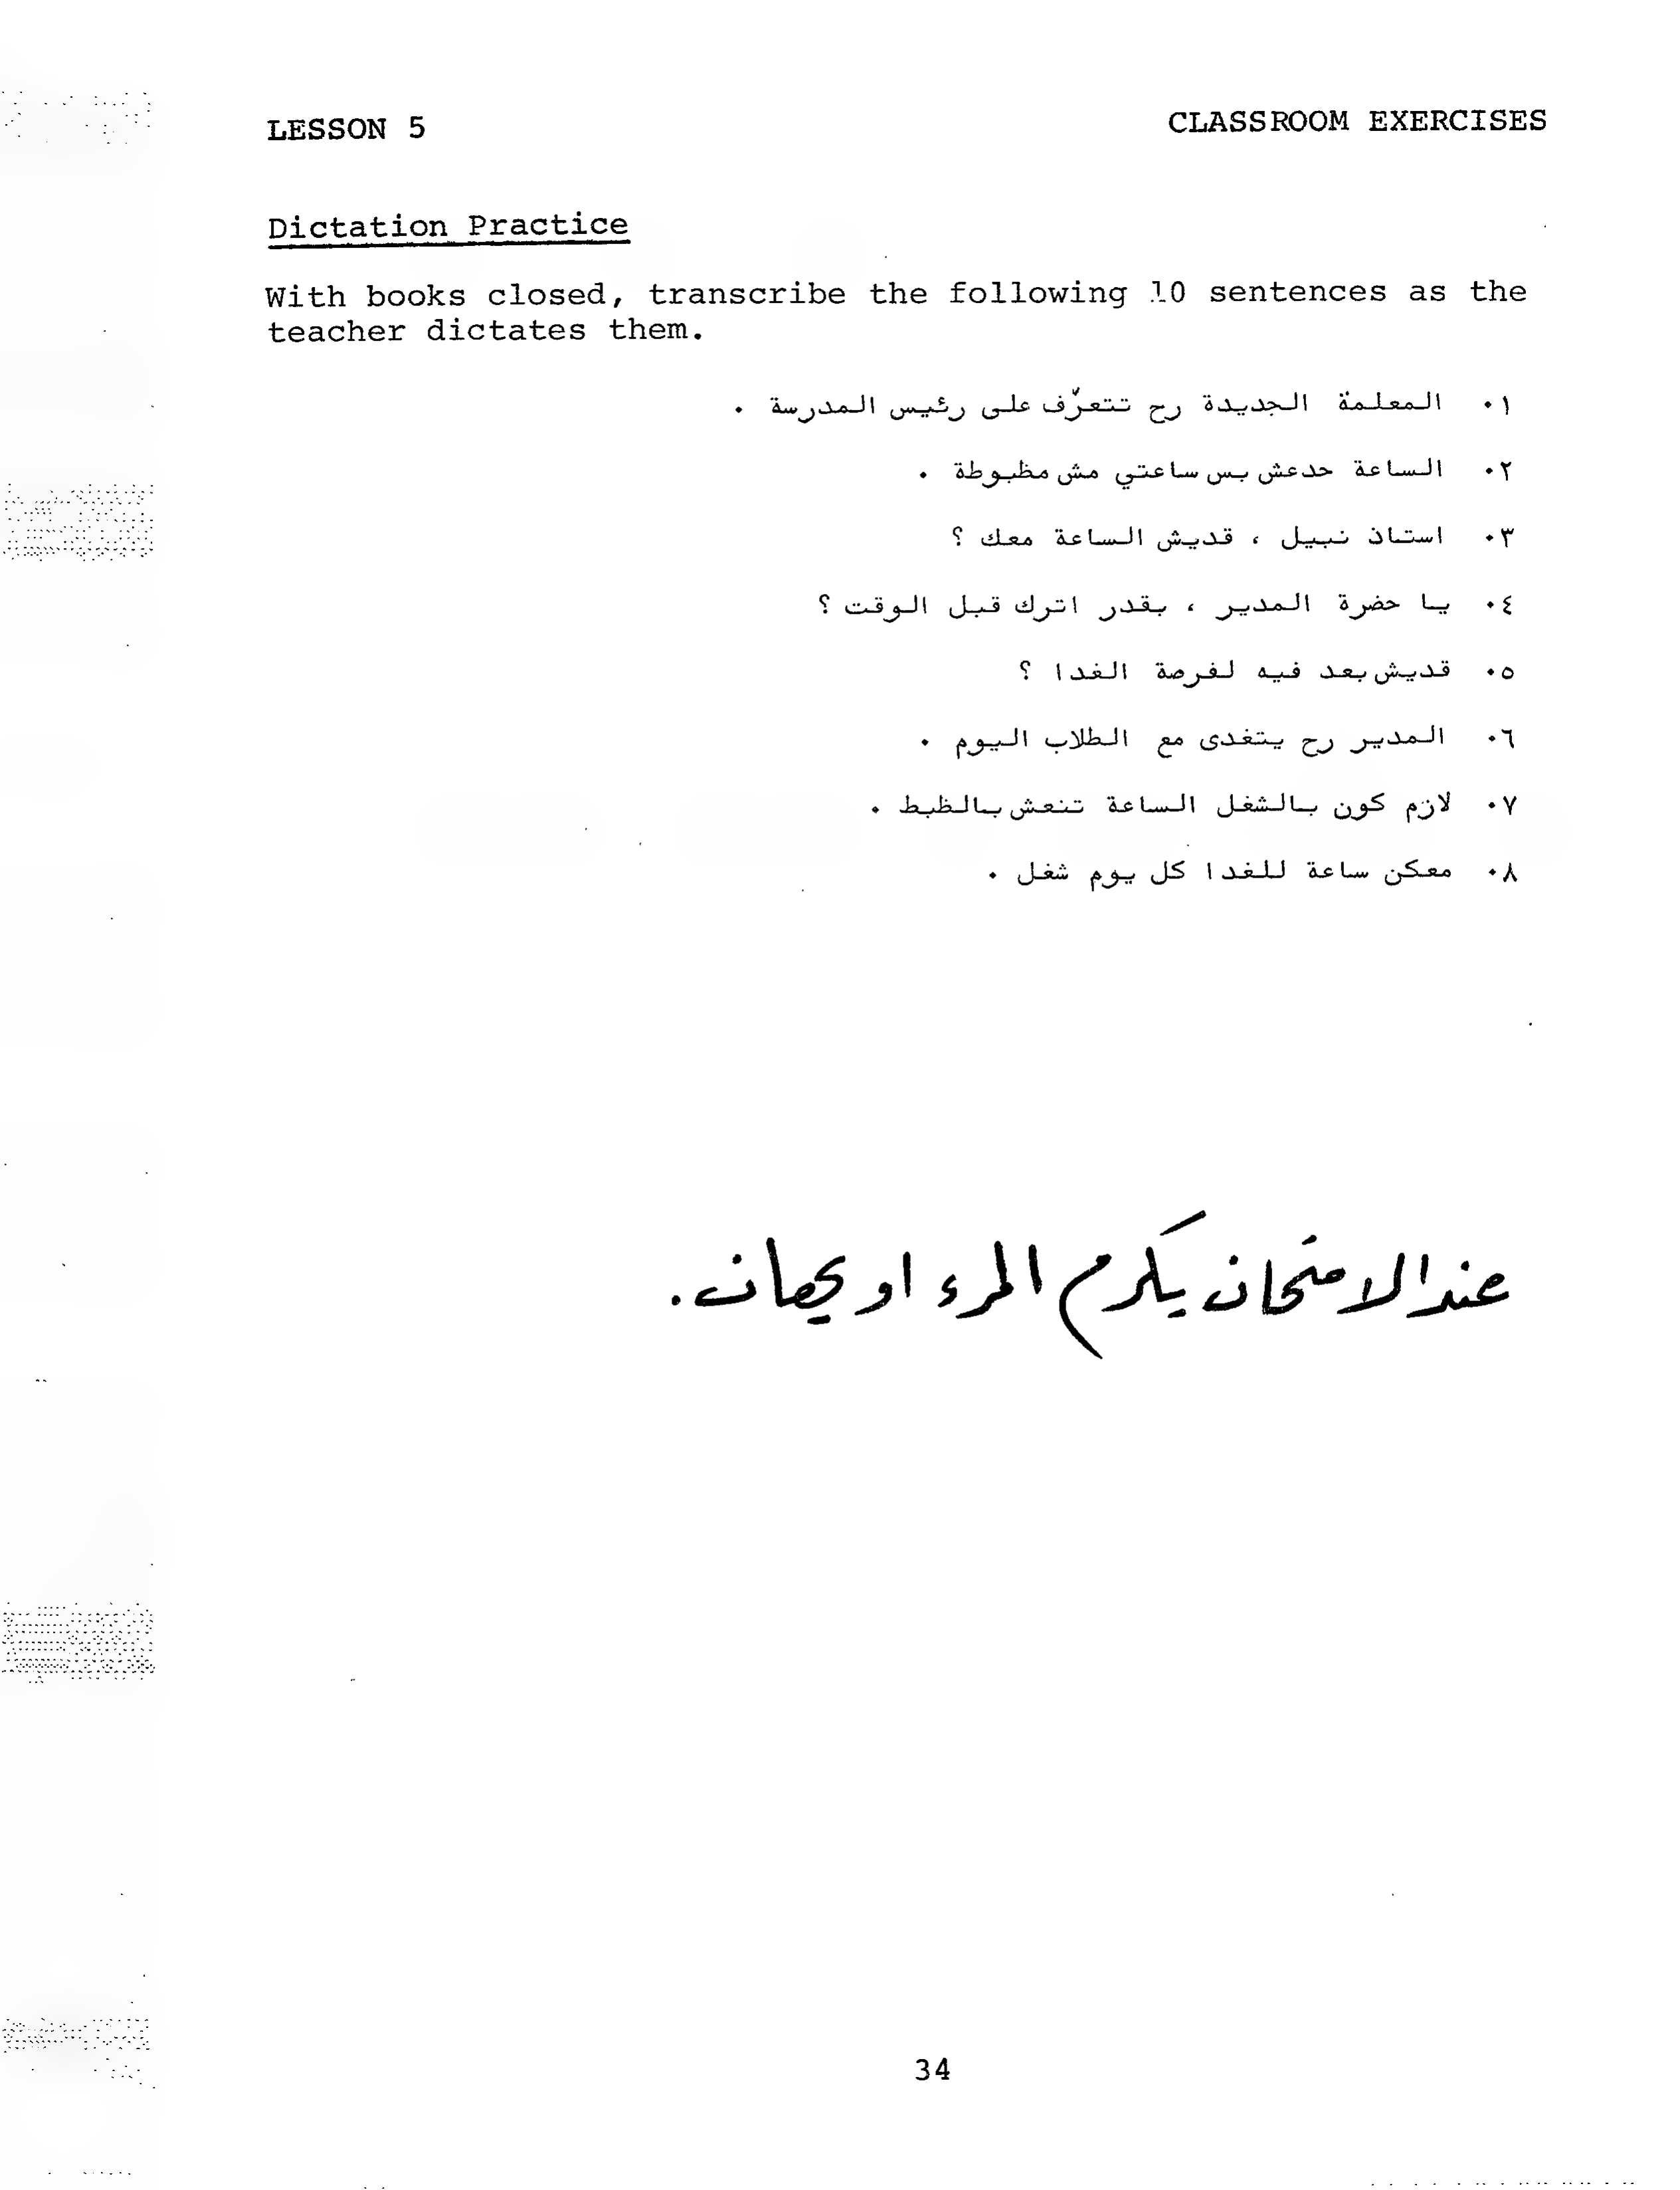 LESSON 5
CLASSROOM EXERCISES
Dictation Practice
With books closed, transcribe the following 10 sentences as the
teacher dictates them.
١٠ المعلمة الجديدة رح تتعرّف على رئيس المدرسة .
٢٠ الساعة حدعش بس ساعتي مش مظبوطة .
٣٠ استاذ نبيل ، قديش الساعة معك ؟
٤٠ يا حضرة المدير ، بقدر اترك قبل الوقت ؟
٥٠ قديش بعد فيه لفرصة الغدا ؟
٦٠ المدير رح يتغدى مع الطلاب اليوم .
٧٠ لازم كون بالشغل الساعة تنعش بالظبط .
٨٠ معكن ساعة للغدا كل يوم شغل .
عند الامتحان يكرم المرء او يهان.
34